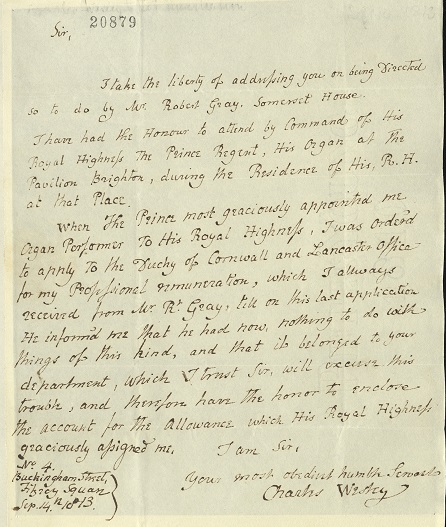 20879
Sir,
I take the liberty of addressing you on being Directed
so to do by Mr. Robert Gray. Somerset House.
I have had the Honour to attend by Command of His
Royal Highness The Prince Regent, His Organ at the
Pavilion Brighton, during the Residence of His, R.H.
at that Place.
When The Prince most graciously appointed me
Organ Performer To His Royal Highness, I was order'd
to apply to the Duchy of Cornwall and Lancaster Office
for my Professional remuneration, which I allways
received from Mr. Rt. Gray, till on this last application
He inform'd me that he had now, nothing to do with
things of this kind, and that it belonged to your
department, which I trust Sir, will excuse this
trouble, and therefore have the honor to enclose
the account for the Allowance which His Royal Highness
graciously assigned me.
I am Sir,
Your most obedient humble Servant
Charles Wesley
No. 4.
Buckingham Street,
Fitzroy Square
Sep. 14.th 1813.